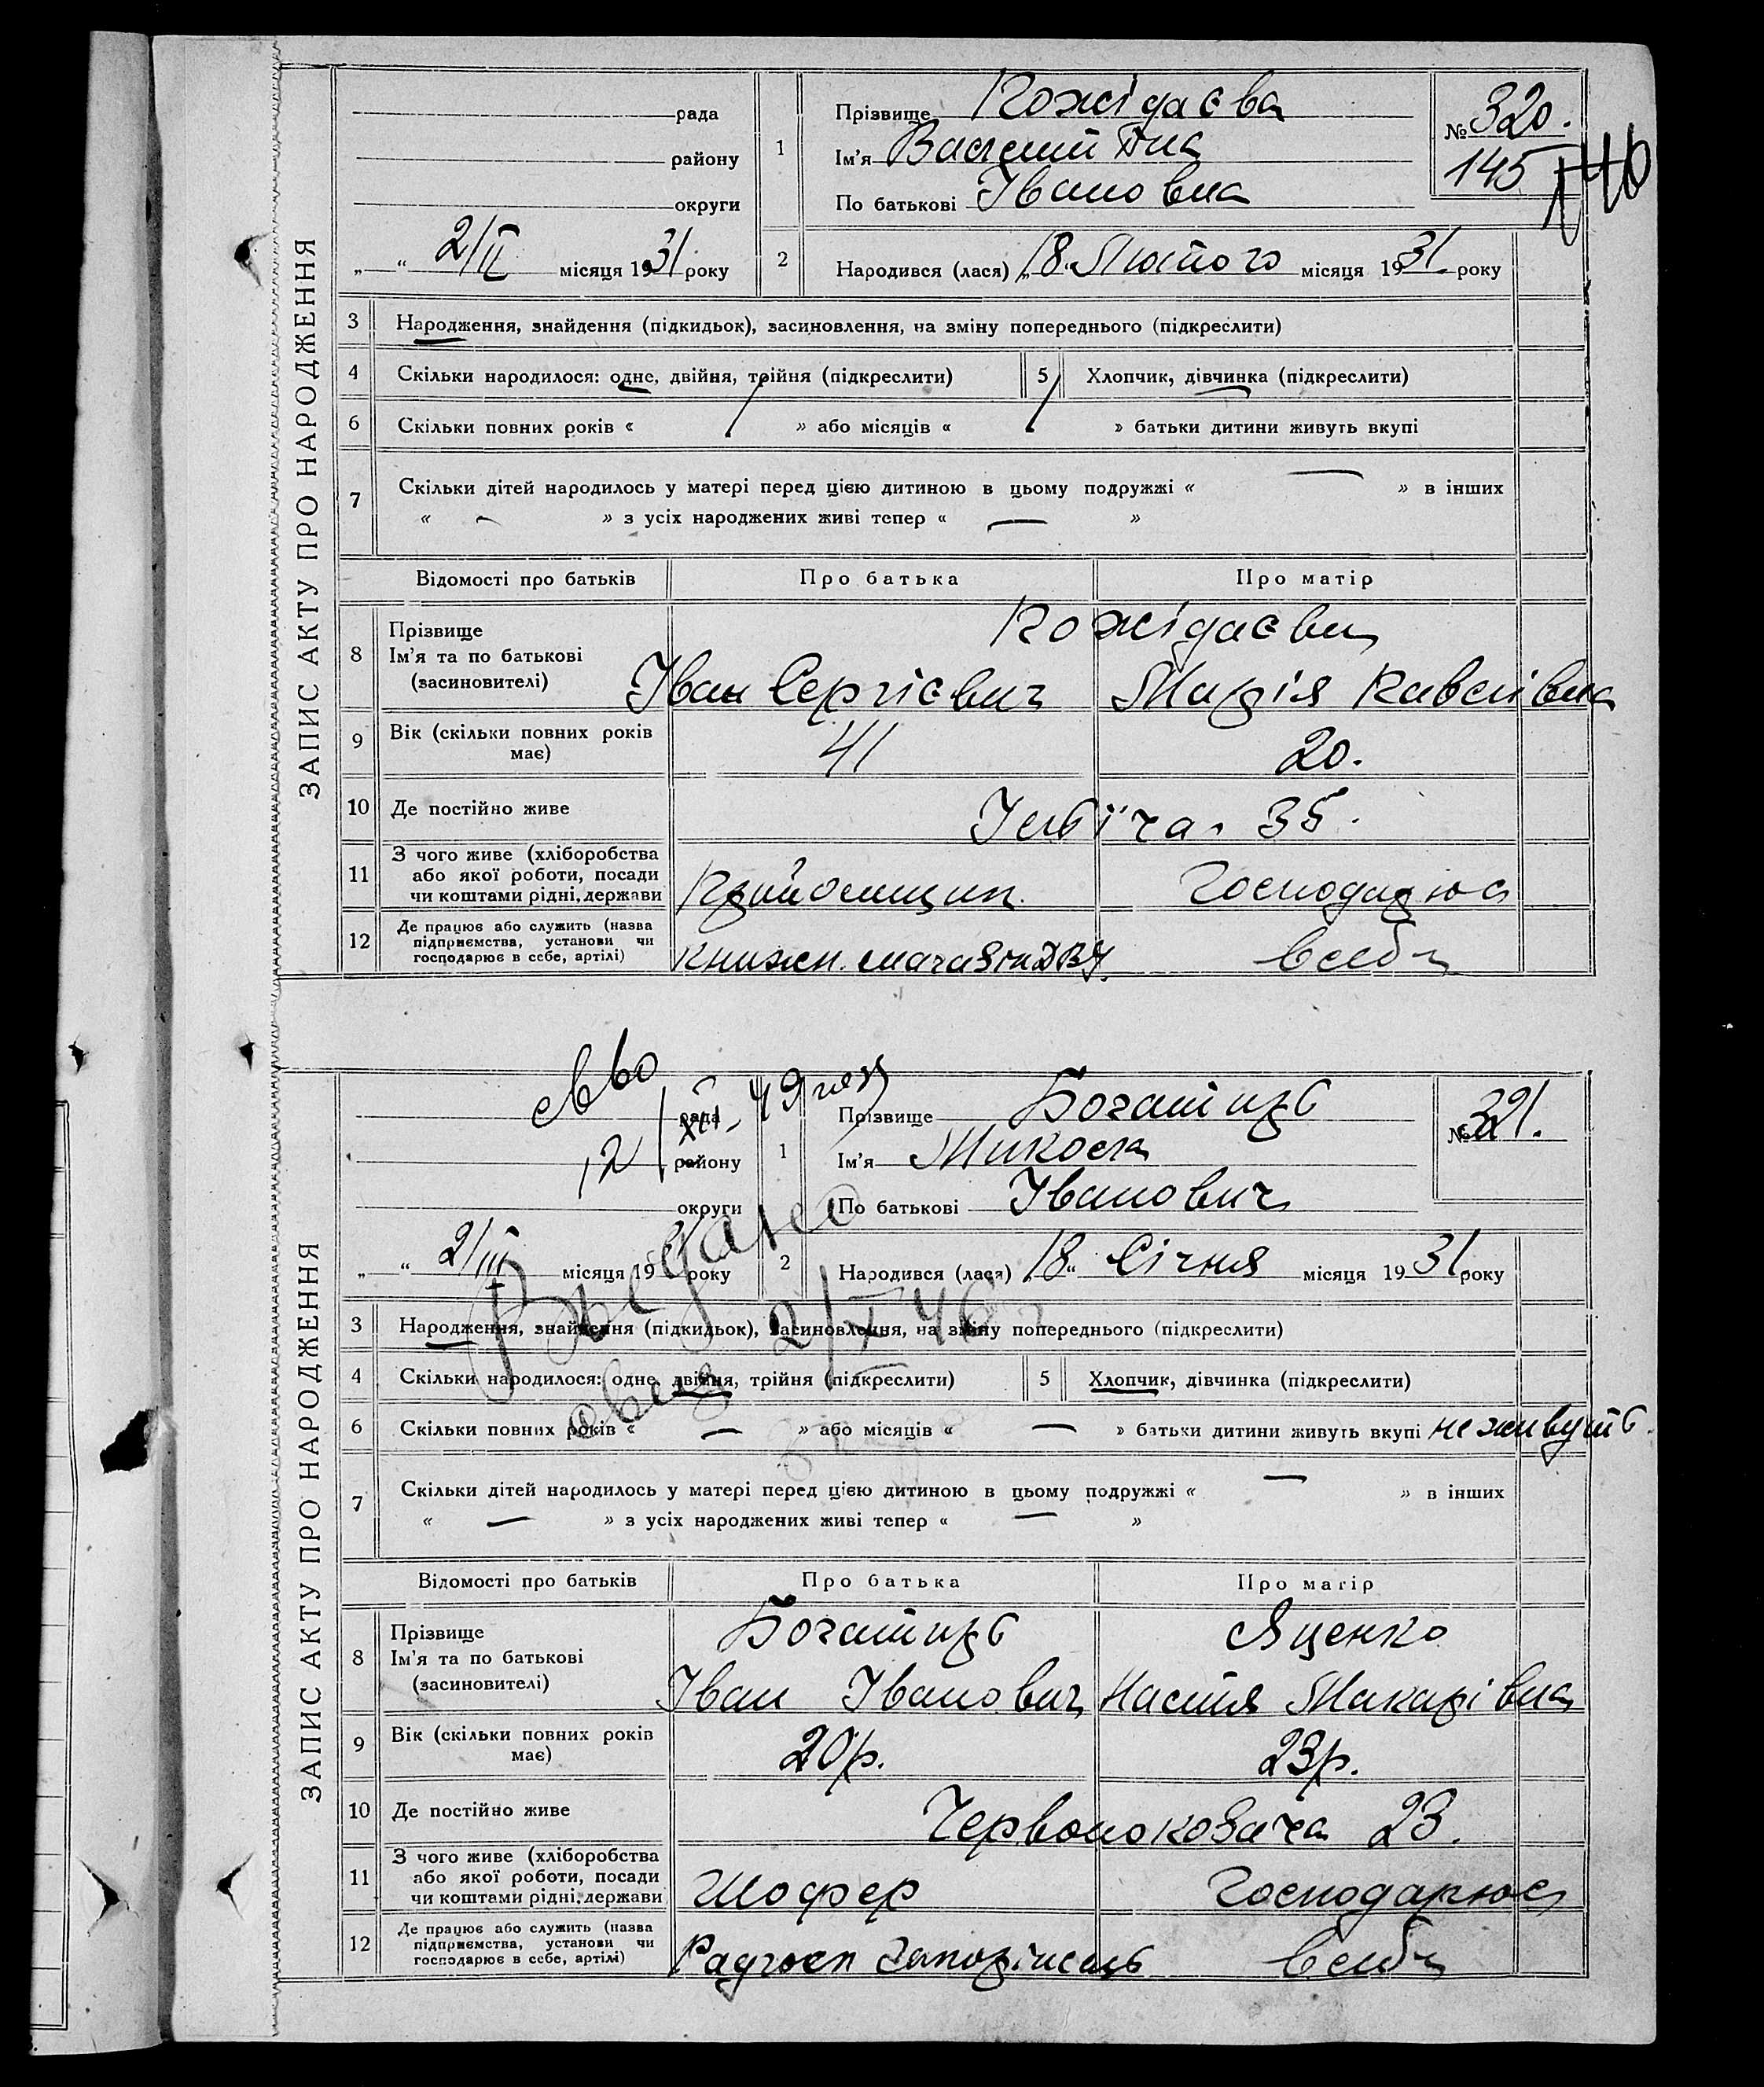 ЗАПИС АКТУ ПРО НАРОДЖЕННЯ
рада
району
округи
„ “ 2/II місяця 1931 року
1
Прізвище Кожідаєва
Ім’я Валентина
По батькові Івановна
№ 320.
145
140
2
Народився (лася) „18“ Лютого місяця 1931 року
3 Народження, знайдення (підкидьок), засиновлення, на зміну попереднього (підкреслити)
4 Скільки народилося: одне, двійня, трійня (підкреслити) 5 Хлопчик, дівчинка (підкреслити)
6 Скільки повних років « » або місяців « » батьки дитини живуть вкупі
7 Скільки дітей народилось у матері перед цією дитиною в цьому подружжі « — » в інших
« — » з усіх народжених живі тепер « — »
Відомості про батьків Про батька Про матір
8 Прізвище
Ім’я та по батькові
(засиновителі)
Кожідаєви
Іван Сергієвич Марія
9 Вік (скільки повних років має) 41 20.
10 Де постійно живе 35.
11 З чого живе (хліборобства
або якої роботи, посади
чи коштами рідні, держави
Господарює
12 Де працює або служить (назва
підприємства, установи чи
господарює в себе, артілі)
Книжн. магазин ДВУ. в себе
ЗАПИС АКТУ ПРО НАРОДЖЕННЯ
рада
району
округи
„ “ 2/III місяця 1931 року
1
Прізвище Богатирь
Ім’я Микола
По батькові Іванович
№ 321.
2
Народився (лася) 18“ Січня місяця 1931 року
3 Народження, знайдення (підкидьок), засиновлення, на зміну попереднього (підкреслити)
4 Скільки народилося: одне, двійня, трійня (підкреслити) 5 Хлопчик, дівчинка (підкреслити)
6 Скільки повних років « — » або місяців « — » батьки дитини живуть вкупі не живуть.
7 Скільки дітей народилось у матері перед цією дитиною в цьому подружжі « — » в інших
« — » з усіх народжених живі тепер « — »
Выдано
2/X 46
Відомості про батьків Про батька Про матір
8 Прізвище
Ім’я та по батькові
(засиновителі)
Богатирь Яценко
Іван Іванович Настя Макарівна
9 Вік (скільки повних років має) 20р. 23р.
10 Де постійно живе Червонокозача 23.
11 З чого живе (хліборобства
або якої роботи, посади
чи коштами рідні, держави
Шофер Господарює
12 Де працює або служить (назва
підприємства, установи чи
господарює в себе, артілі)
Радгосп Запоріжець в себе